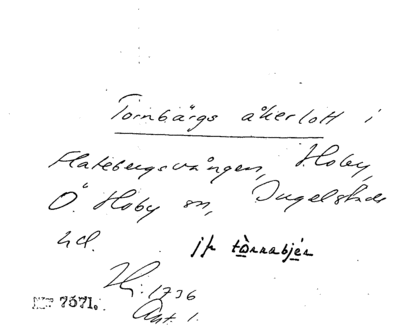 Tornbärgs åkerlott i
Flatebergsvången, Hoby,
Ö. Hoby sn, Ingelstads
hd. jfr tòrrabjér
Hj. 1736
Ant. 1.
7371.